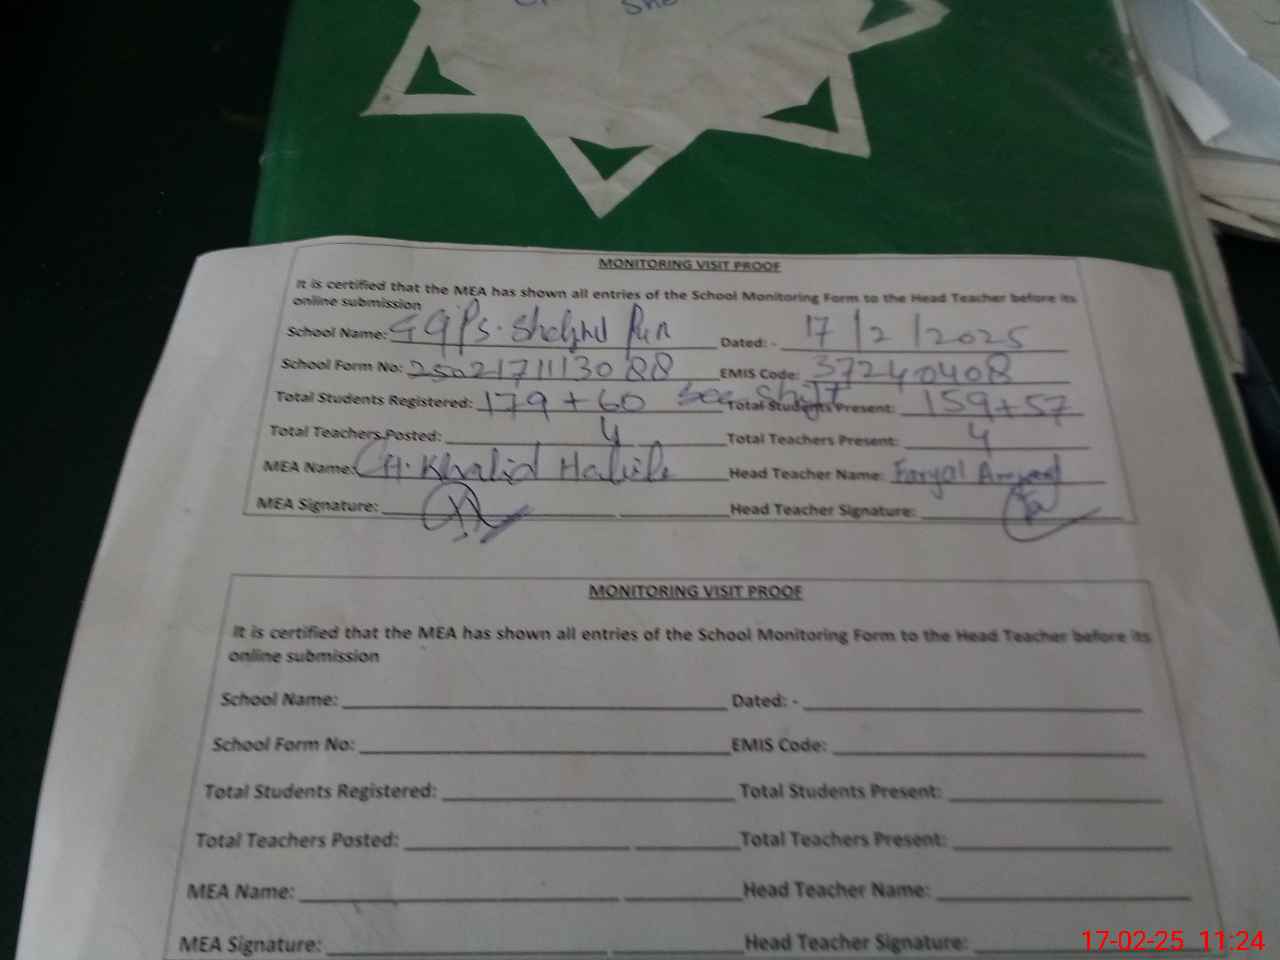 MONITORING VISIT PROOF
It is certified that the MEA has shown all entries of the School Monitoring Form to the Head Teacher before its
online submission
School Name: GGPS. Dated: - 17/2/2025
School Form No: 25021711130 88 EMIS Code: 37240408
Total Students Registered: 179 + 60 sec. shift Total Students Present: 159+57
Total Teachers Posted: 4 Total Teachers Present: 4
MEA Name: CH. Khalid Habib Head Teacher Name: Faryal
MEA Signature: Head Teacher Signature:
MONITORING VISIT PROOF
It is certified that the MEA has shown all entries of the School Monitoring Form to the Head Teacher before its
online submission
School Name: Dated: -
School Form No: EMIS Code:
Total Students Registered: Total Students Present:
Total Teachers Posted: Total Teachers Present:
MEA Name: Head Teacher Name:
MEA Signature: Head Teacher Signature:
17-02-25 11:24